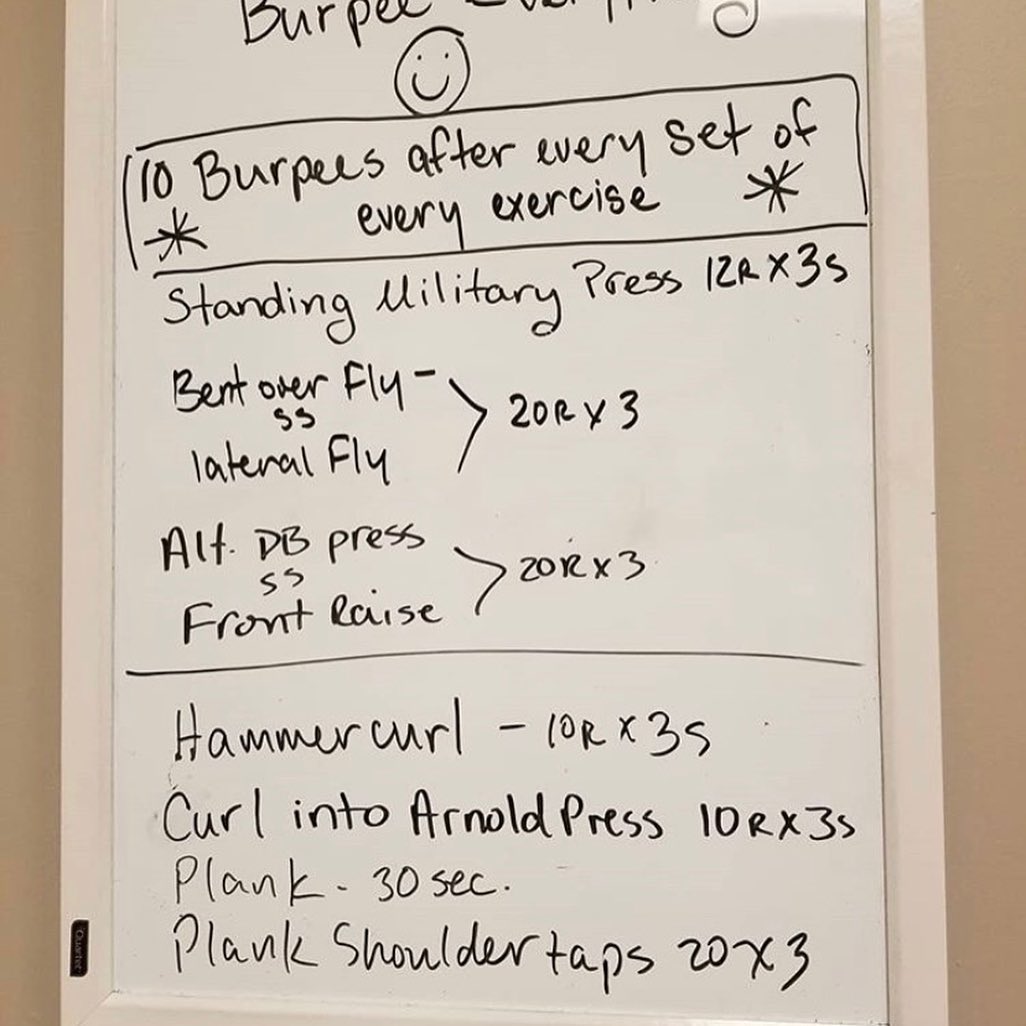 Burpee Everything
10 Burpees after every set of
* every exercise *
Standing Military Press 12R X 3s
Bent over Fly -
ss
lateral Fly
20R X 3
Alt. DB press
ss
Front Raise
20R X 3
Hammer curl - 10R X 3s
Curl into Arnold Press 10R X 3s
Plank - 30 sec.
Plank Shoulder taps 20 X 3
Quartet